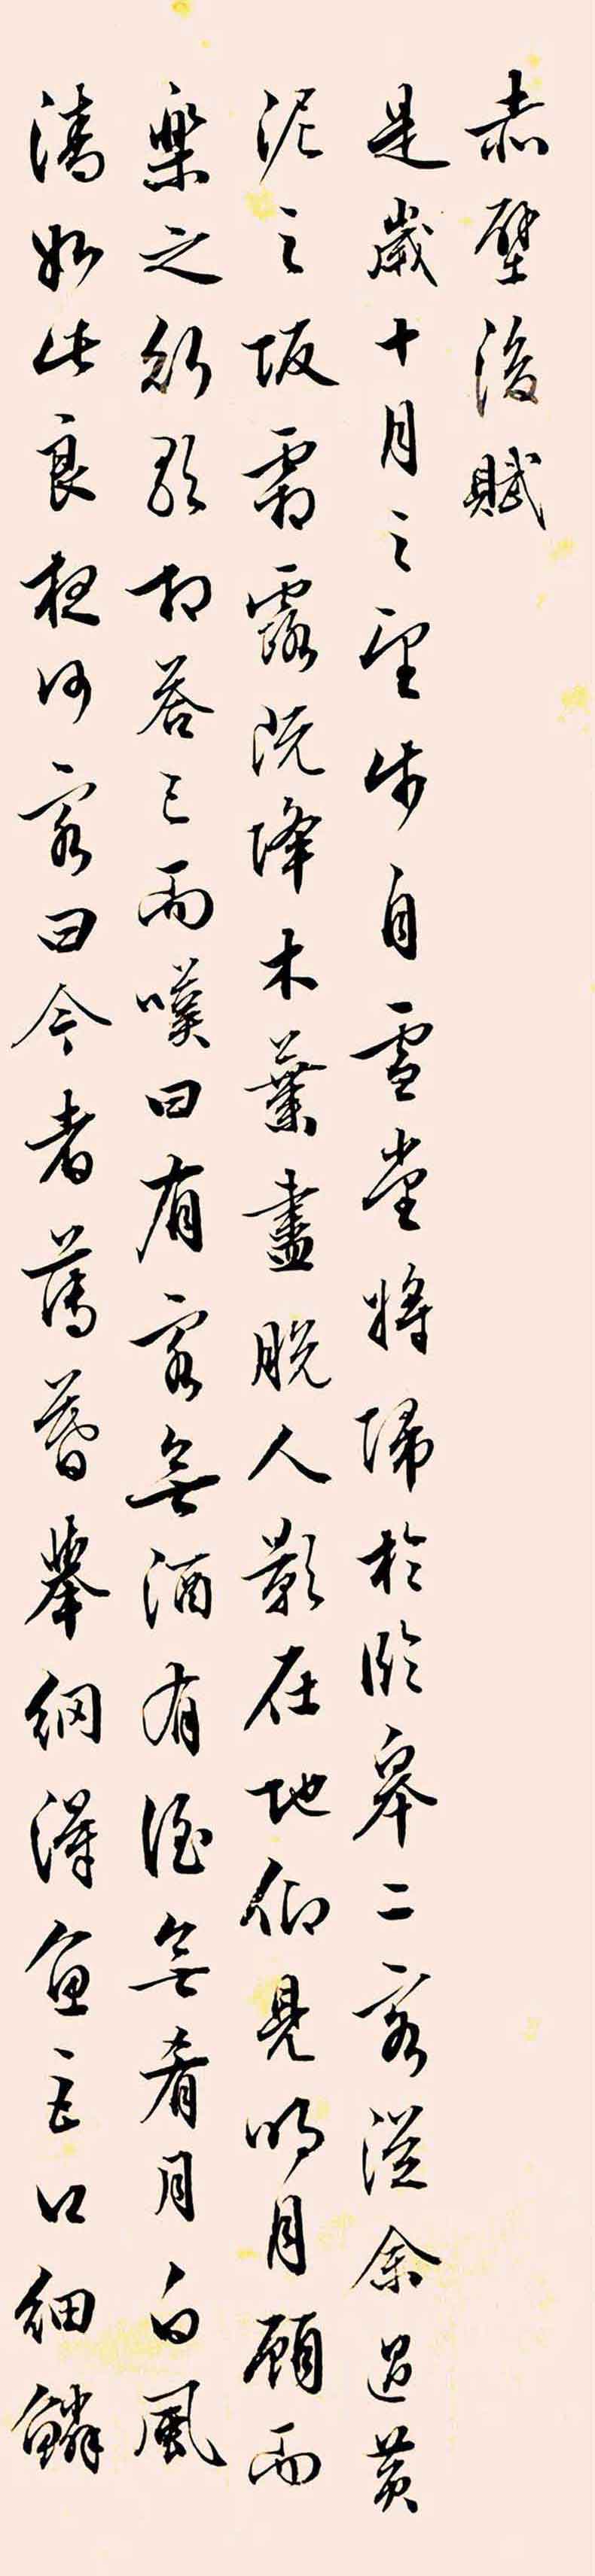 赤壁後賦
是歲十月之望步自雪堂將歸於臨皋二客從余過黃
泥之坂霜露既降木葉盡脫人影在地仰見明月顧而
樂之行歌相答已而嘆曰有客無酒有酒無肴月白風
清如此良夜何客曰今者薄暮舉網得魚巨口細鱗